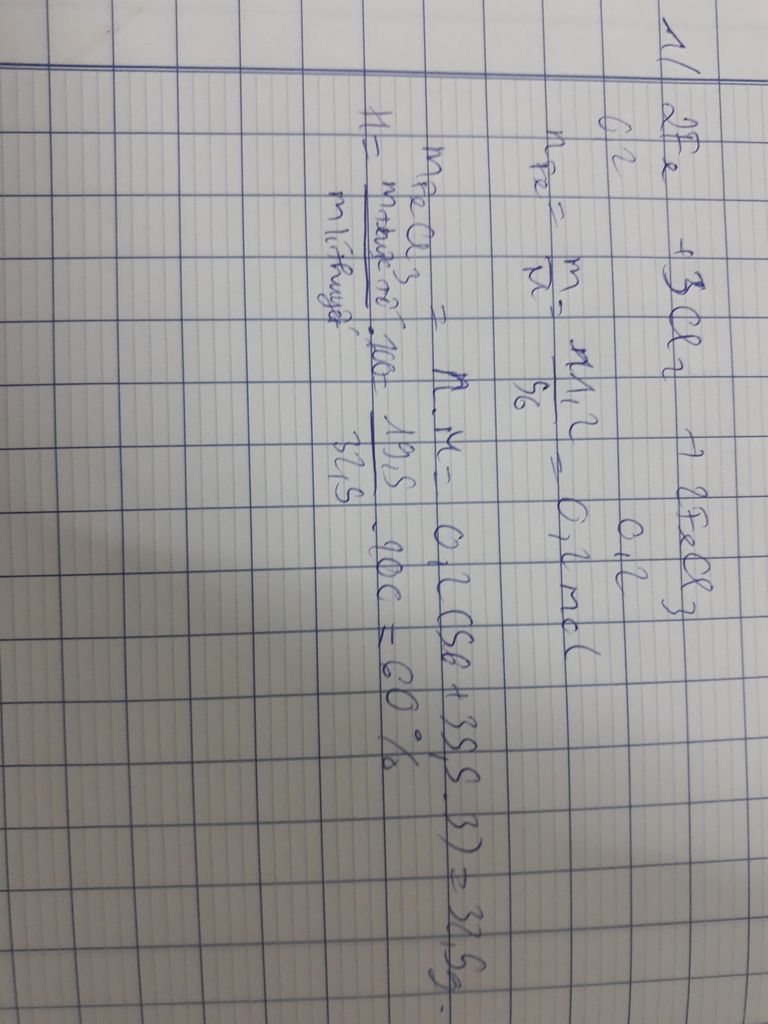 1/ 2Fe + 3Cl2 → 2FeCl3
0,2 0,2
nFe = m/M = 11,2/56 = 0,2 mol
mFeCl3 = n.M = 0,2 (56 + 35,5.3) = 32,5g.
H = m thực tế/m lí thuyết .100 = 19,5/32,5 .100 = 60%